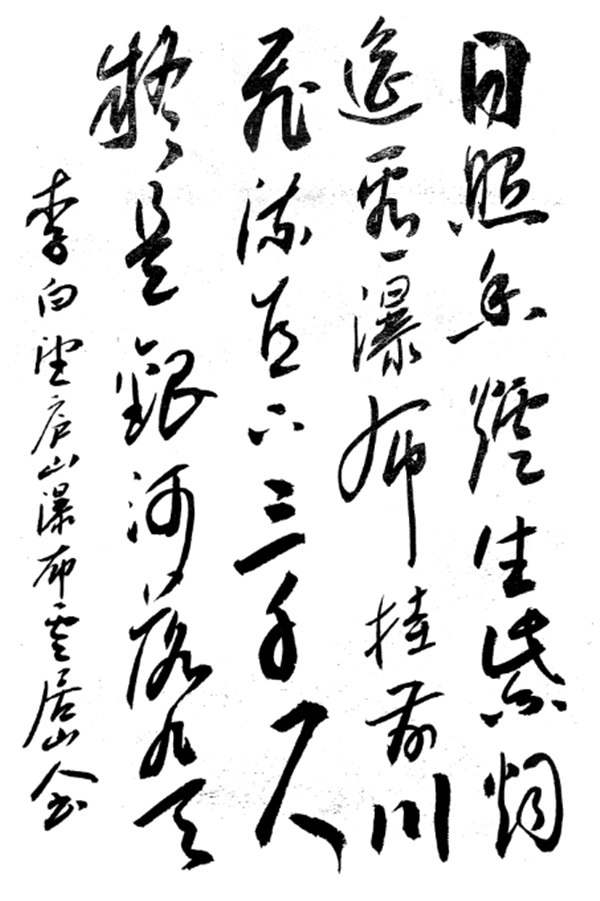 日照香炉生紫烟
遥看瀑布挂前川
飞流直下三千尺
疑是银河落九天
李白望庐山瀑布云居山人书